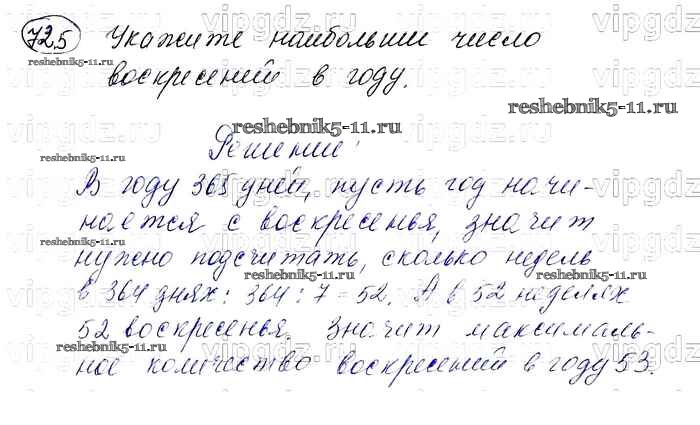 725 Укажите наибольшии число
reshebnik5-11.ru
воскресений в году.
reshebnik5-11.ru
reshebnik5-11.ru
Решении:
reshebnik5-11.ru
В году 365 дней, пусть год начи-
нается с воскресенья, значит
reshebnik5-11.ru
нужно подсчитать, сколько недель
reshebnik5-11.ru
в 364 днях: 364 : 7 = 52. А в 52 неделях
52 воскресенья. Значит максималь-
reshebnik5-11.ru
ное количество воскресений в году 53.
reshebnik5-11.ru
vipgdz.ru